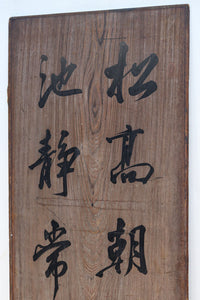 松高朝
池静常